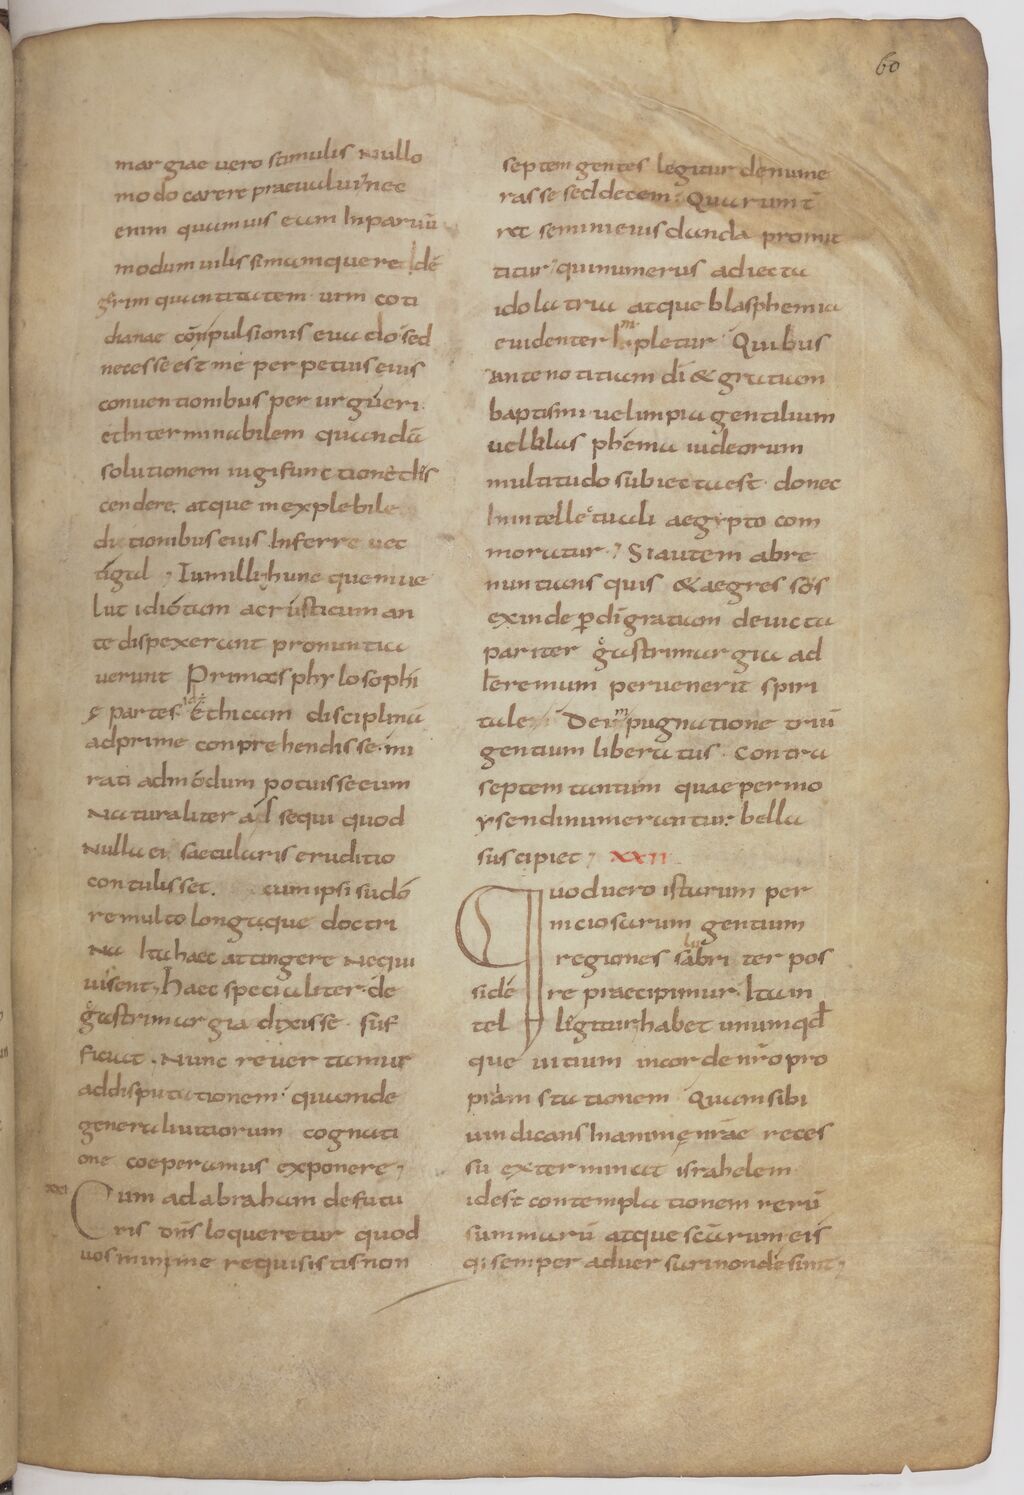 60
margiae vero stimulis Nullo
modo carere praevalui nec
enim quamvis eam in parvū
modum vilissimamque redé
gerim quantitatem vim coti
dianae conpulsionis evado sed
necesse est me perpetuis eius
conventionibus perurgueri
et interminabilem quandā
solutionem iugi functione dis
cendere. atque inexplebile
dictionibus eius Inferre vec
tigal ; Tum illi hunc quem ve
lut idiotam ac rusticum an
te dispexerant pronuntia
verunt Primas phylosophi
ę partes idē Ethicam disciplinā
adprime conprehendisse. mi
rati admodum potuisse eum
Naturaliter adsequi quod
Nulla ei saecularis eruditio
contulisset. cum ipsi sudo
re multo longaque doctri
Na Ita haec attingere Nequi
visent; haec specialiter de
gastrimargia dixisse suf
ficiat. Nunc revertamur
ad disputationem quam de
generali vitiorum cognati
one coeperamus exponere;
xxi Cum ad abraham de futu
ris dn̄s loqueretur quod
vos minime requisistis non
septem gentes legitur denume
rasse sed decem Quarum t̄
ra semini eius danda promit
titur qui numerus adiecta
idolatria atque blasphemia
evidenter Impletur Quibus
ante notitiam dī & gratiam
baptismi vel impia gentilium
vel blasphema iudeorum
multitudo subiecta est. donec
In intellectuali aegypto com
moratur; Si autem abre
nuntians quis & aegressos
exinde per dī gratiam devicta
pariter gastrimargia ad
heremum pervenerit spiri
tale De impugnatione triū
gentium liberatus. Contra
septem tantum quae per mo
ysen dinumerantur bella
suscipiet; XXII
Quod vero istarum per
niciosarum gentium
regiones salubriter pos
sidere praecipimur Ita in
telligitur habet unumqd
que vitium in corde nr̄o pro
priam stationem Quam sibi
vindicans In animę nr̄ae reces
su exterminat israhelem
idest contemplationem rerū
summarū atque scārum eis
qi semper adversari non desinit;